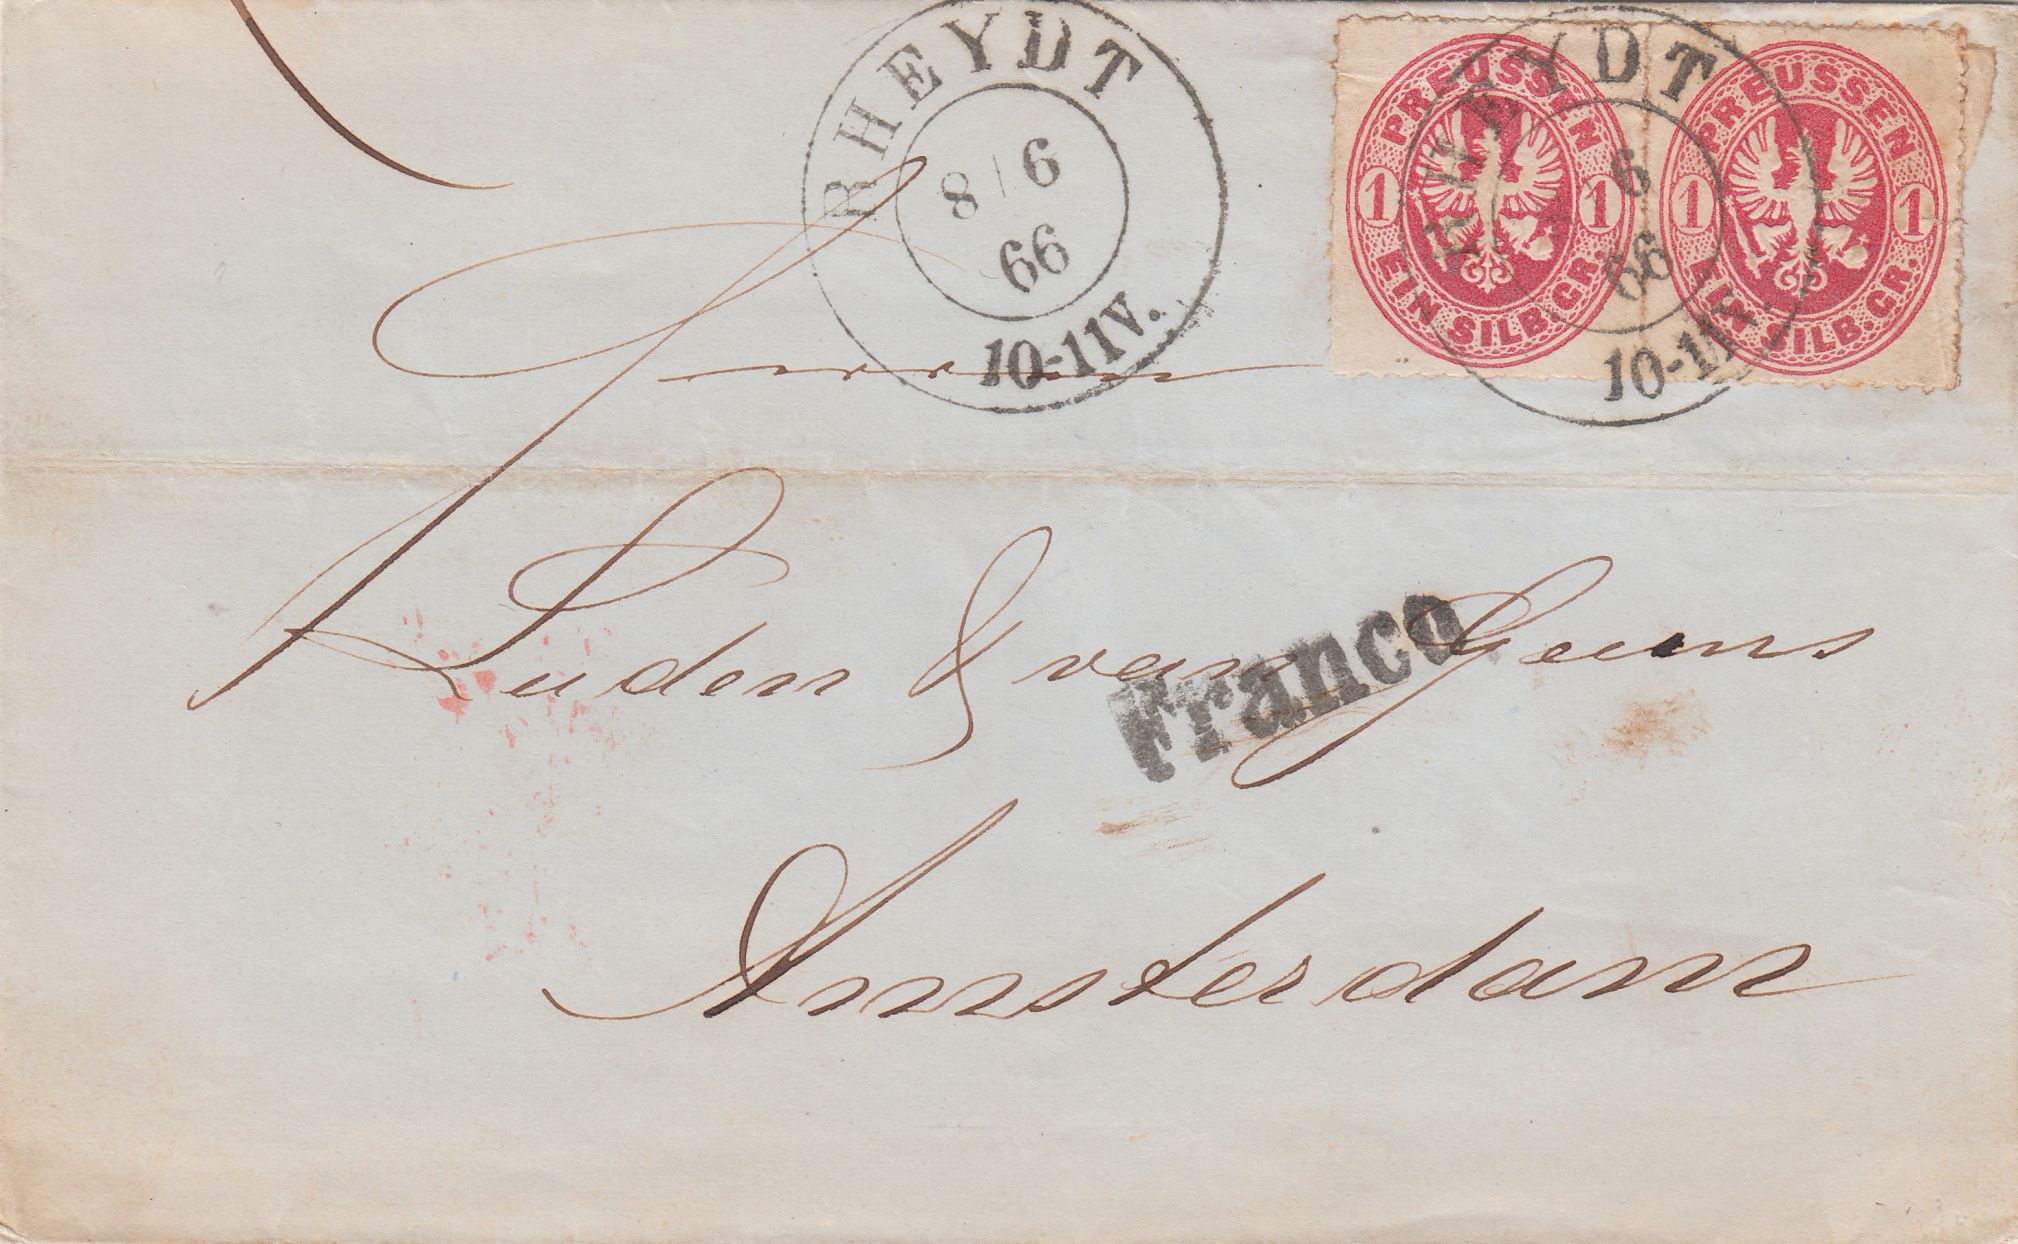 RHEYDT
8 6
66
10-11V.
PREUSSEN
1 1
EIN SILB.GR.
PREUSSEN
1 1
EIN SILB.GR.
RHEYDT
6
66
10-11V.
Herren
Luden & van Geuns
Franco
Amsterdam